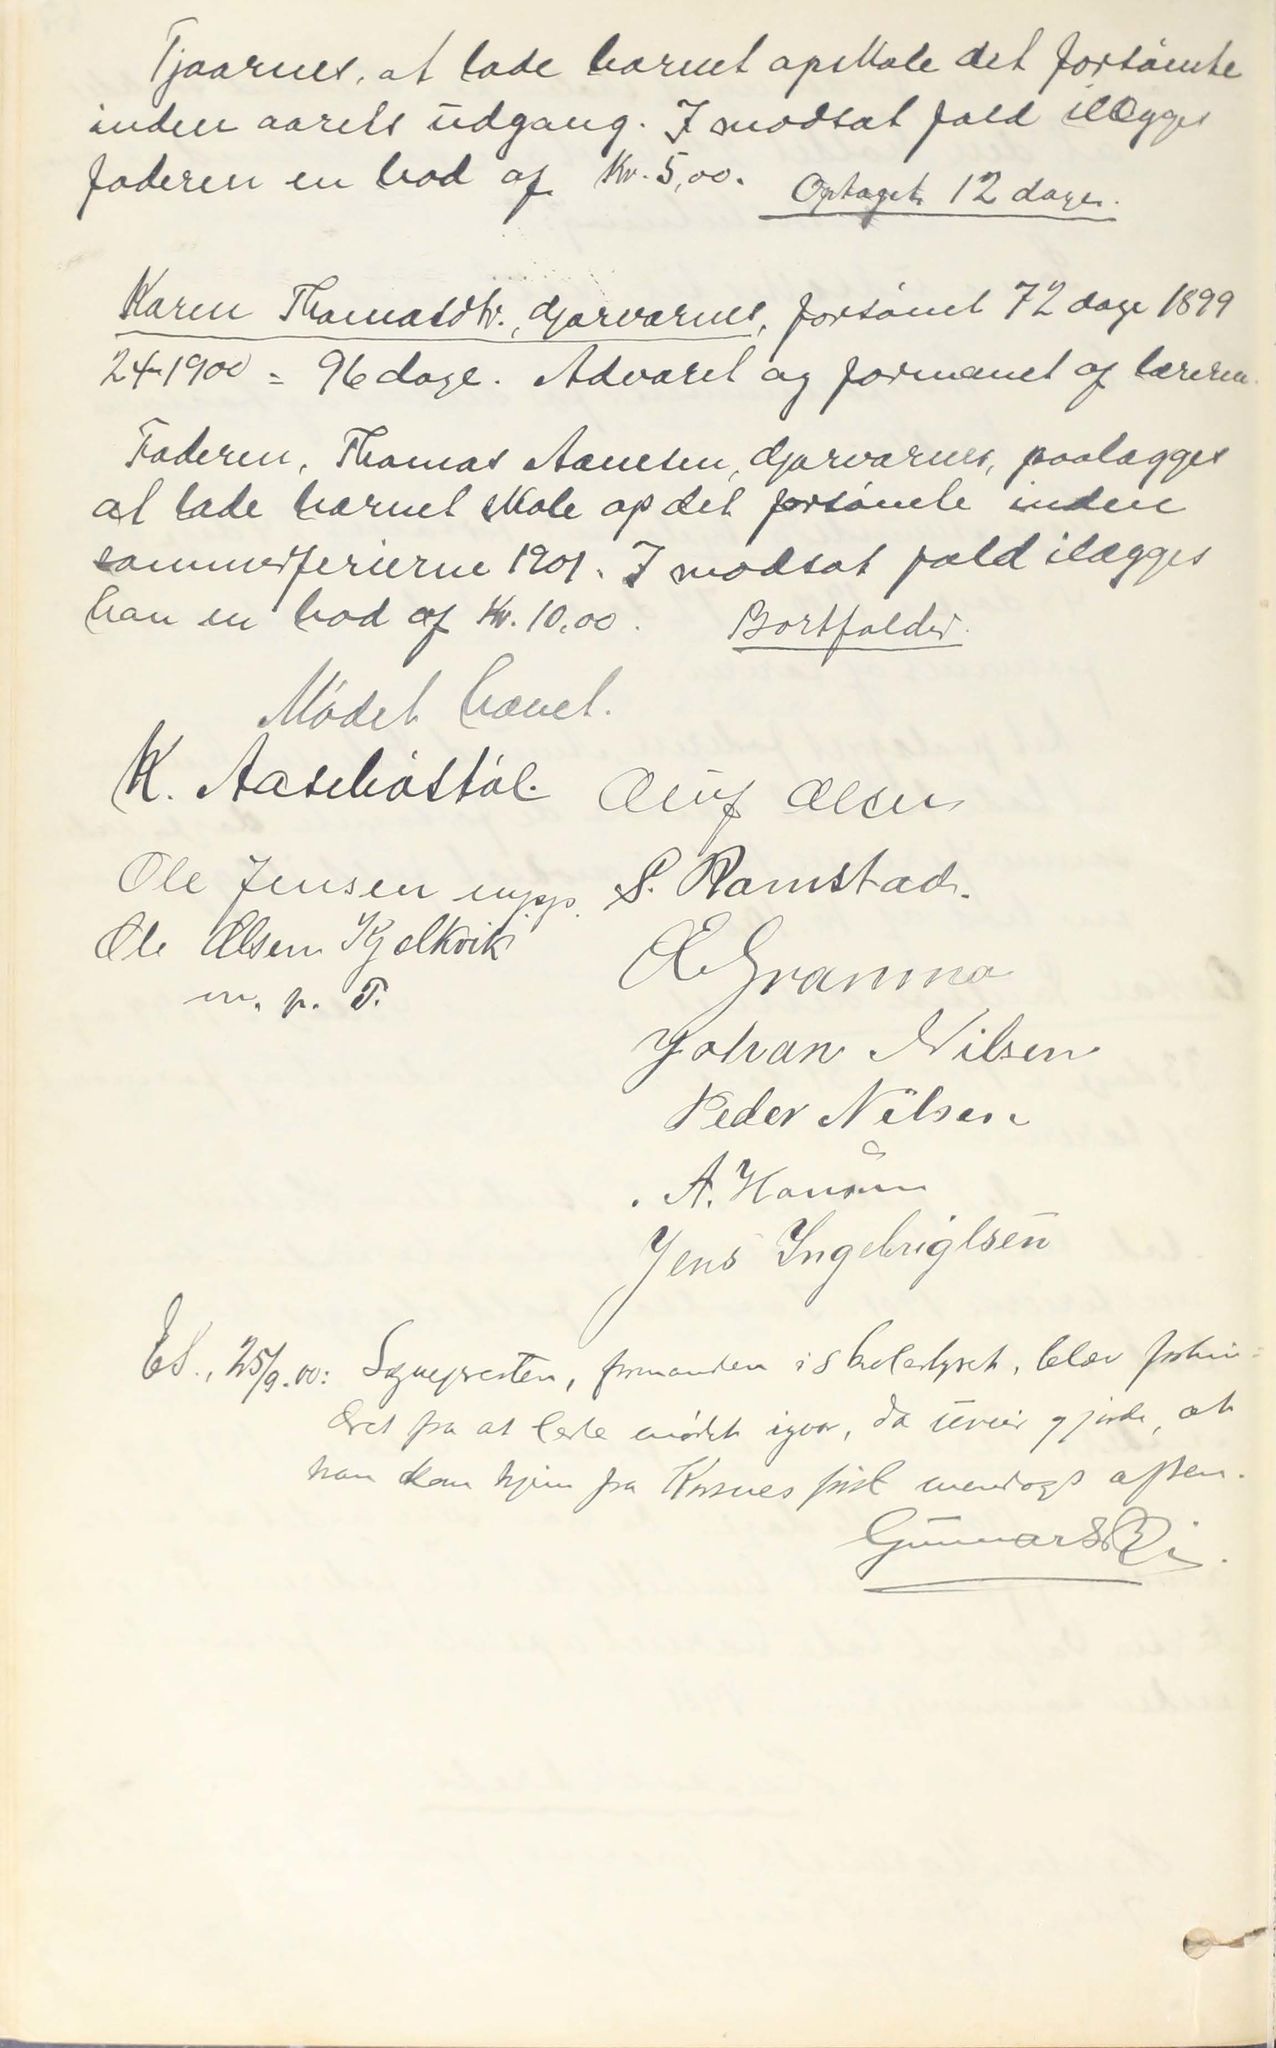 Tjaarnes, at lade barnet opskole det forsömte
inden aarets udgang. I modsat fald ilægges
faderen en bod af Kr. 5,00. Optaget 12 dage.
Karen Thomasdtr., djarvarnes, forsömt 72 dage 1899
24 - 1900 = 96 dage. Advaret og formanet af læreren.
Faderen, Thomas Aanesen, djarvarnes, paalægges
at lade barnet skole op det forsömte inden
sommerferierne 1901. I modsat fald ilægges
han en bod af Kr. 10,00. Bortfalder.
Mødet hævet.
K. Aasebøstøl. Oluf Olsen
Ole Jensen mpp. S. Ramstad.
Ole Olsen Kjelkvik
m. p. P.
Johan Nilsen
Peder Nilsen
A. Hansen
Jens Ingebrigtsen
ES., 25/9.00: Sognepresten, formanden i skolestyret, blev forhin-
dret fra at lede mødet igaar, da uveir gjorde, at
han kom hjem fra Korsnes først mandags aften.